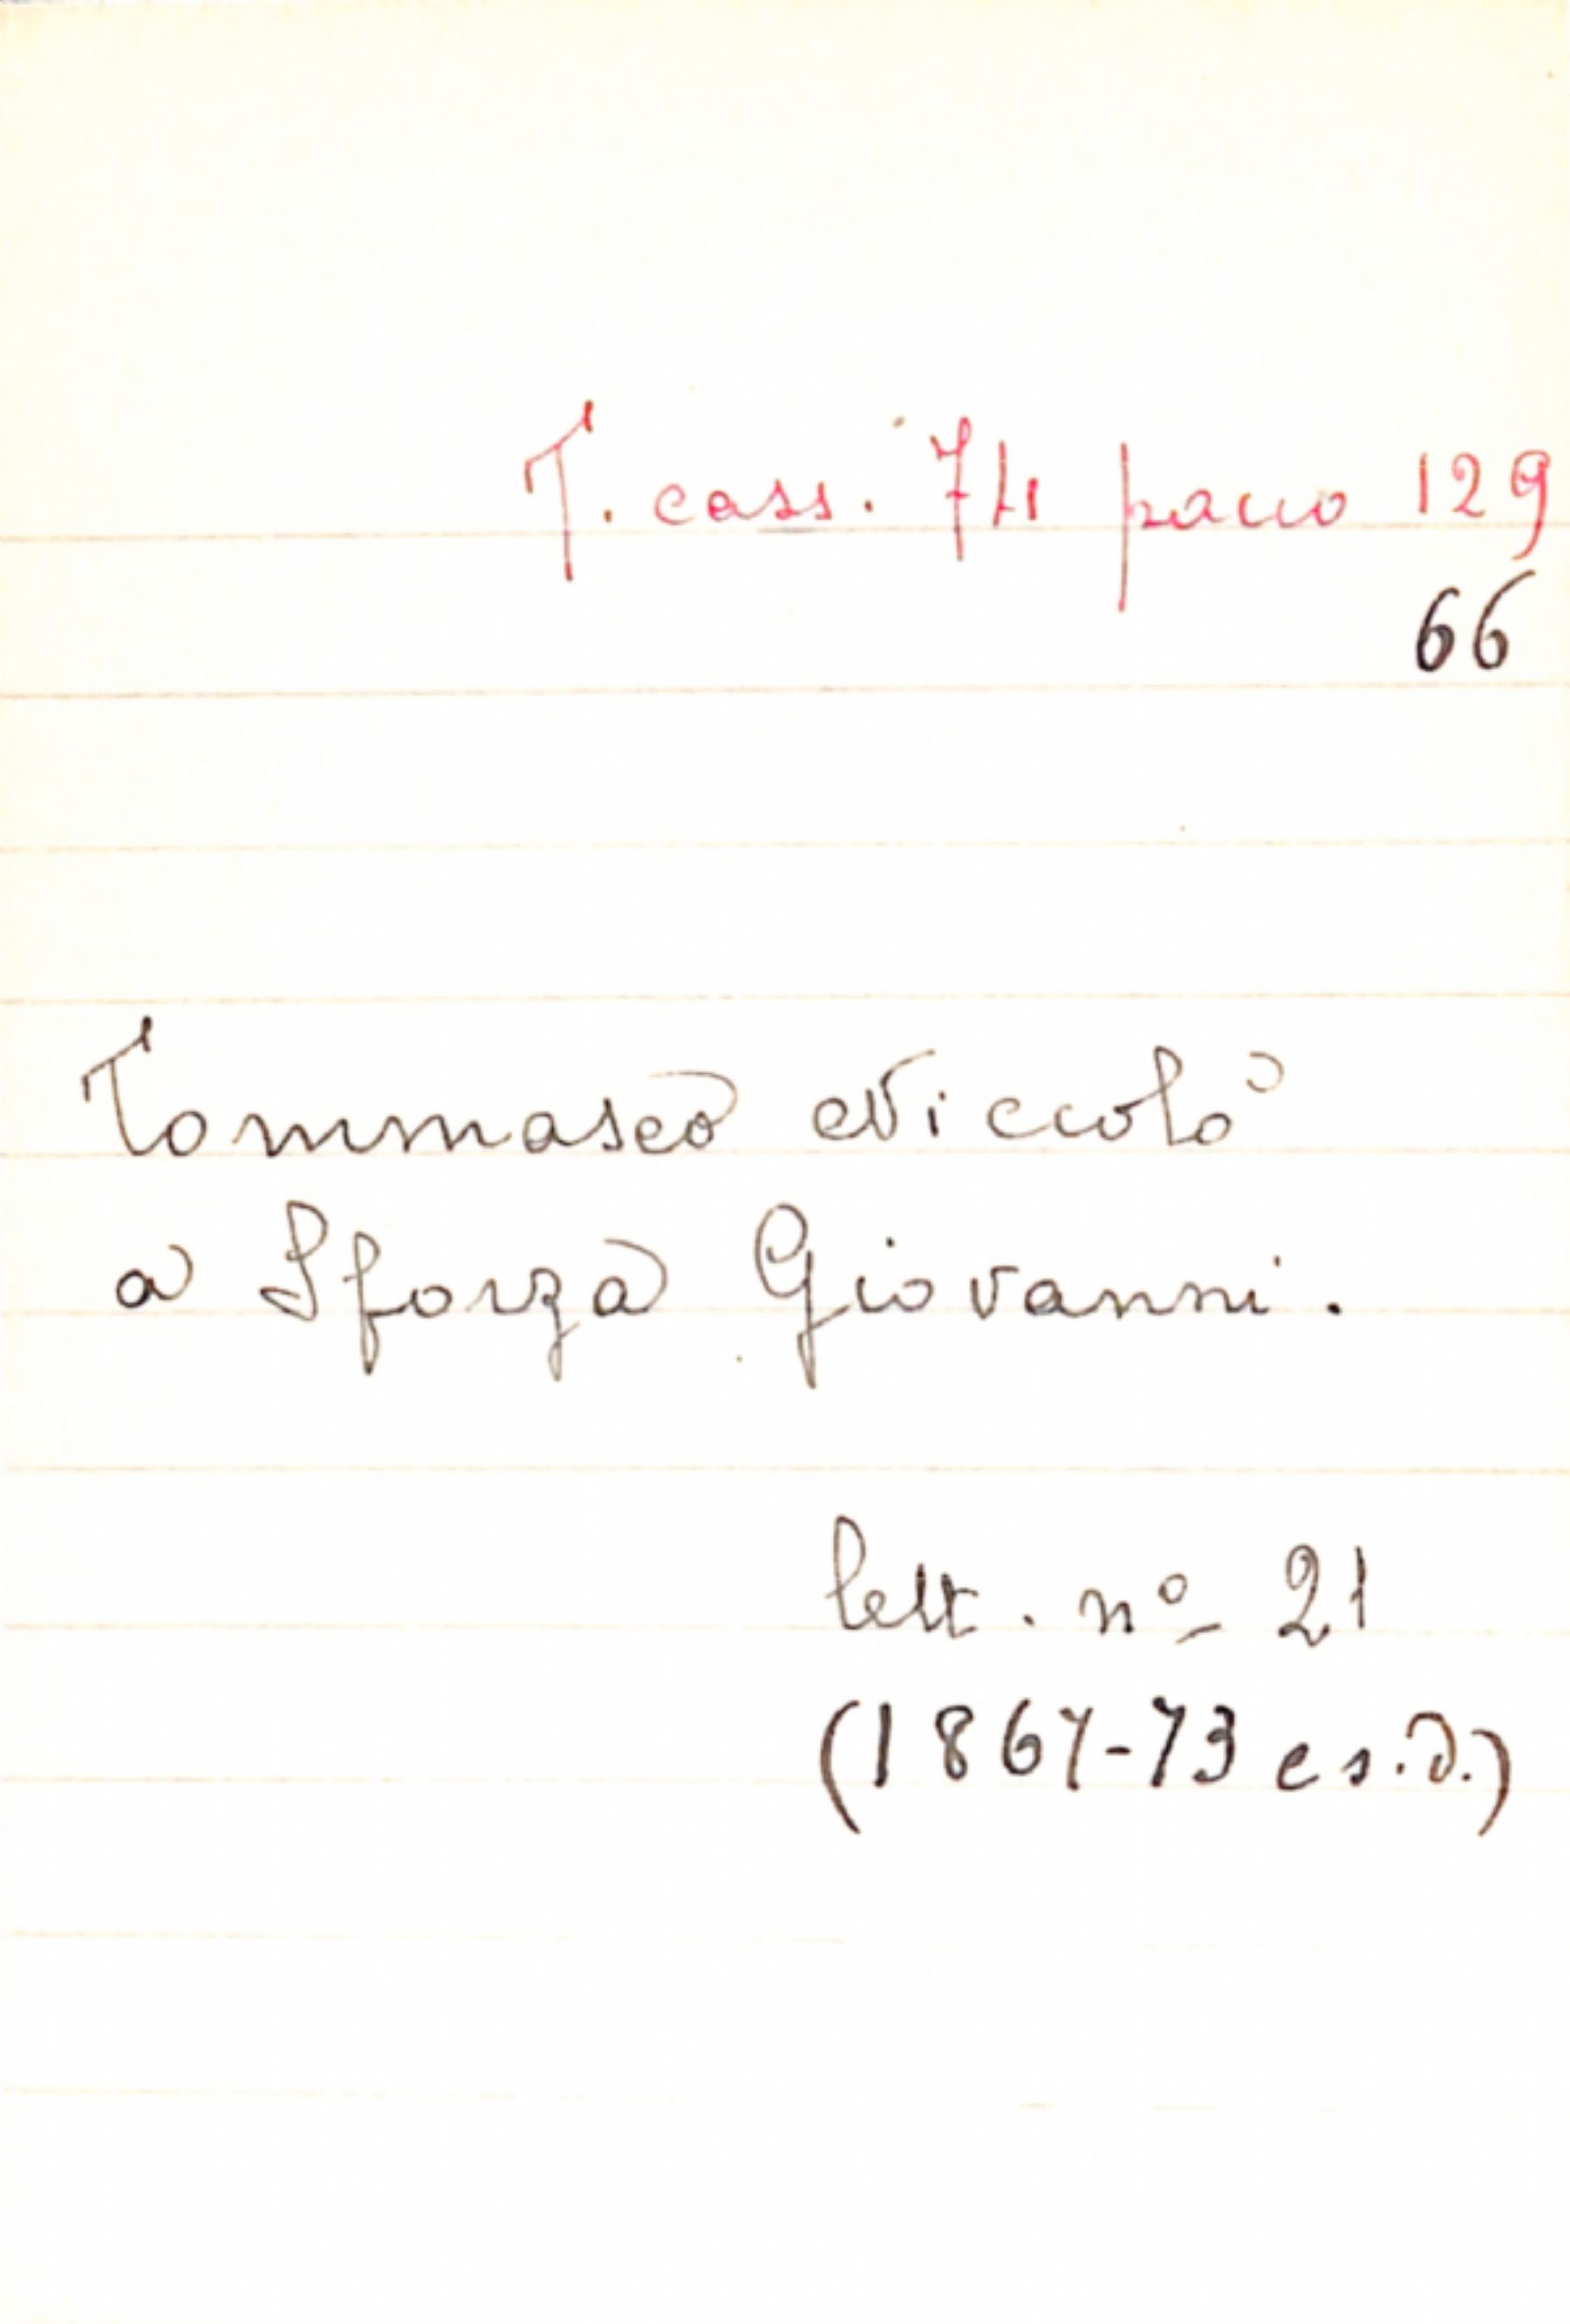 T. cass. 74 pacco 129
66
Tommaseo Niccolò
a Sforza Giovanni.
lett. nº 21
(1867-73 e s.d.)